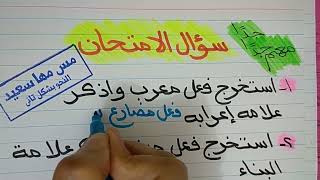 سؤال الامتحان
مهم جدا جدا
مس مها سعيد
النحو بشكل تاني
١- استخرج فعل معرب واذكر
علامة إعرابه فعل مضارع
٢- استخرج فعل علامة
البناء